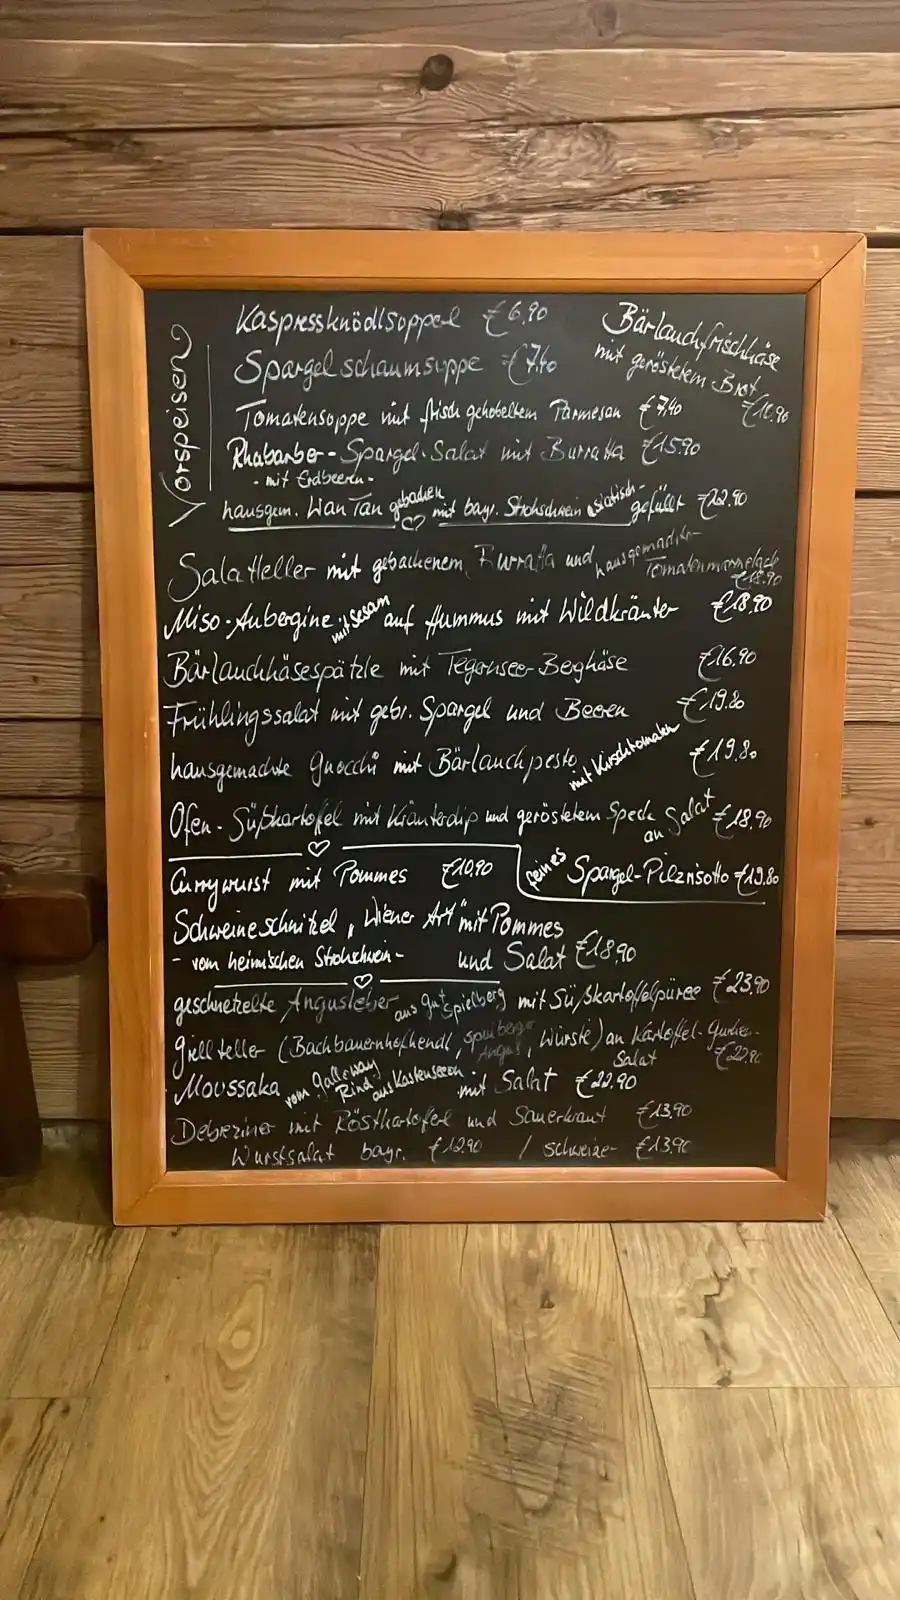 Vorspeisen
Kaspressknödlsupperl €6,90
Bärlauchfrischkäse
mit geröstetem Brot
Spargelschaumsuppe €7,40
Tomatensuppe mit frisch gehobeltem Parmesan €7,40
Rhabarber-Spargel-Salat mit Burratta €15,90
- mit Erdbeeren -
hausgem. Wan Tan gebacken ♡ mit bayr. Strohschwein asiatisch- gefüllt
Salatteller mit gebackenem Burratta und hausgemachter Tomatenmarmelade €18,90
Miso-Aubergine mit Sesam auf Hummus mit Wildkräuter €18,90
Bärlauchkäsespätzle mit Tegernsee-Bergkäse €16,90
Frühlingssalat mit gebr. Spargel und Beeren €19,80
hausgemachte Gnocchi mit Bärlauchpesto mit Kirschtomaten €19,80
Ofen-Süßkartoffel mit Kräuterdip und geröstetem Speck an Salat €18,90
♡
Currywurst mit Pommes €10,90
feines Spargel-Pilzrisotto €19,80
Schweineschnitzel „Wiener Art" mit Pommes
- vom heimischen Strohschwein - und Salat €18,90
♡
geschnetzelte Angusleber aus Gut Spielberg mit Süßkartoffelpüree €23,90
Grillteller (Bachbauernhofhendl, Angus, Würstl) an Kartoffel-Gurken-
Salat €22,90
Moussaka vom Galloway Rind aus Kastenseeon mit Salat €22,90
Debreziner mit Röstkartoffel und Sauerkraut €13,90
Wurstsalat bayr. €12,90 / schweizer €13,90